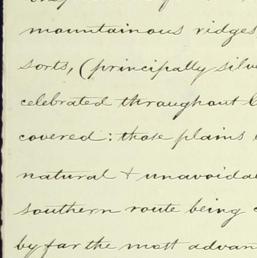 mountainous ridges
sorts, (principally silve
celebrated throughout
covered: those plains
natural & unavoida
southern route being
by far the most advan